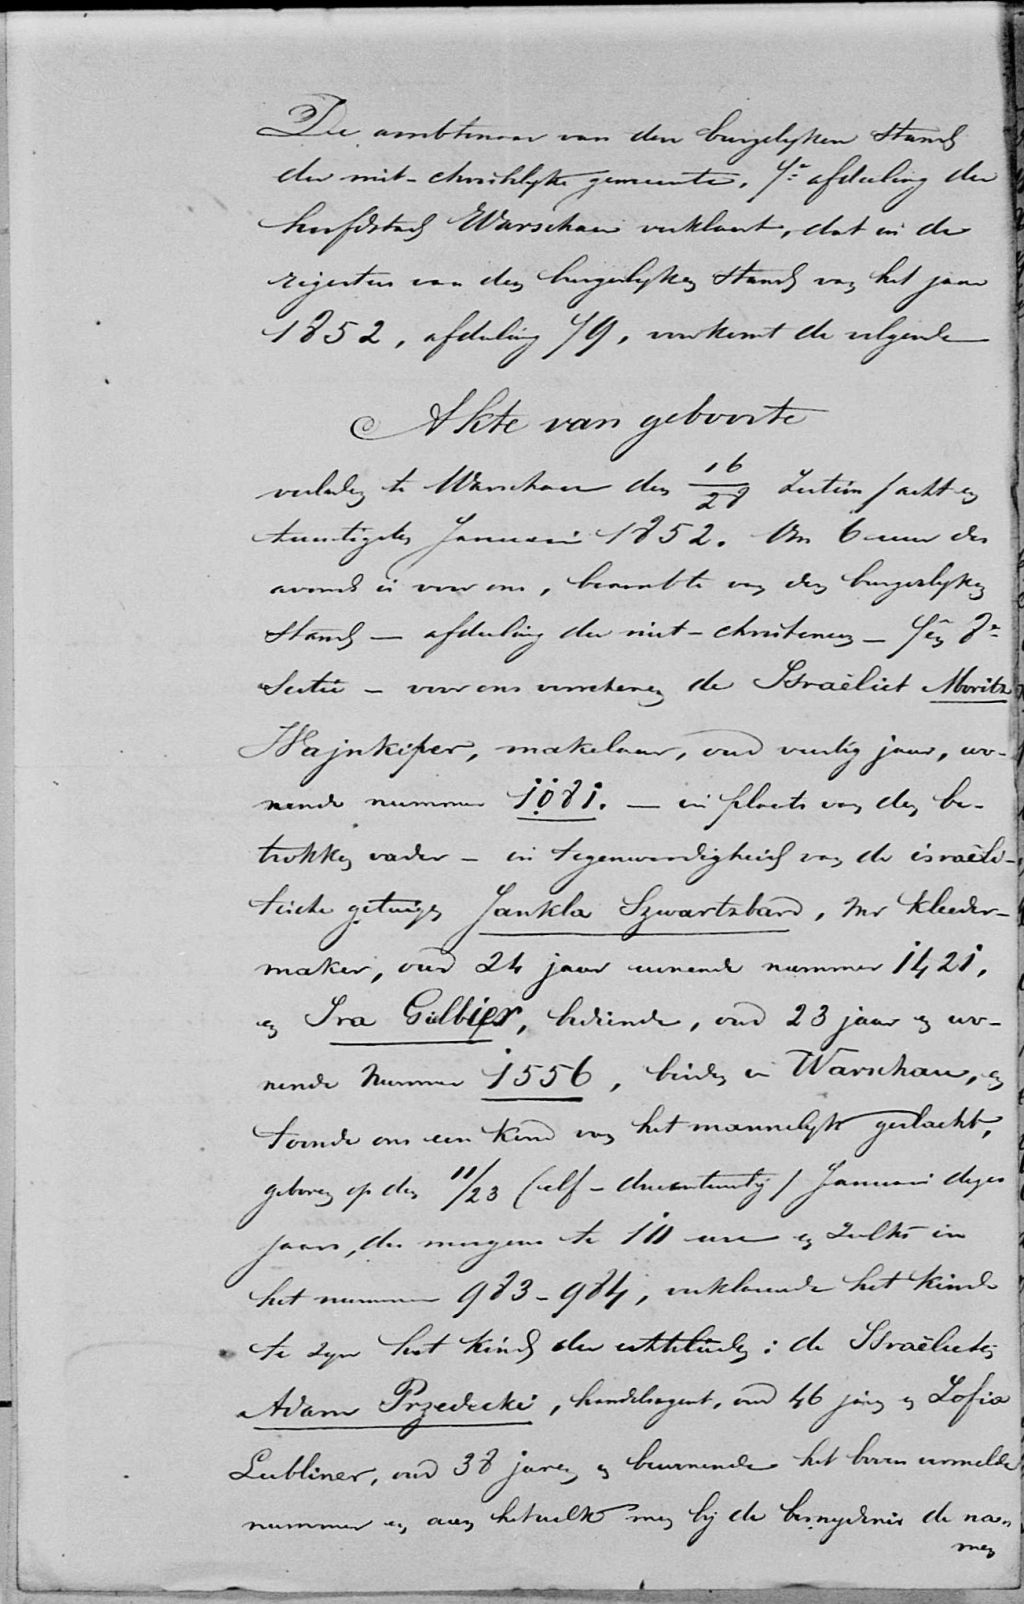 De ambtenaar van den burgelyken Stand
der niet-christelyke gemeente, 4e afdeeling der
hoofdstad Warschau verklaart, dat in de
registers van den burgerlyken Stand van het jaar
1852, afdeeling 79, voorkomt de volgende
Akte van geboorte
verleden te Warschau den 16/28 Zestien / acht en
twintigsten Januari 1852. Om 6 uur des
avonds is voor ons, beambte van den burgerlyken
Stand — afdeeling der niet-christenen — 8e
Sectie — voor ons verschenen de Israëliet Moritz
Wajnkiper, makelaar, oud veertig jaar, wo-
nende nummer 1081. — in plaats van den be-
trokken vader — in tegenwoordigheid van de israëli-
tische getuigen Jankla Szwartzbard, kleeder-
maker, oud 24 jaar wonende nummer 1421,
en Ira Gelbier, bediende, oud 23 jaar en wo-
nende Nummer 1556, beiden in Warschau, en
toonde ons een kind van het mannelyk geslacht,
geboren op den 11/23 (elf - drieentwintig / Januari dezes
jaars, des morgens te 10 ure en zulks in
het nummer 983-984, verklarende het kind
te zyn het kind der echtelieden: de Israëlieten
Adam Przedecki, handelsagent, oud 46 jaren en Zofia
Lubliner, oud 38 jaren en bewonende het boven vermelde
nummer en aan hetwelk men bij de besnydenis de na-
men